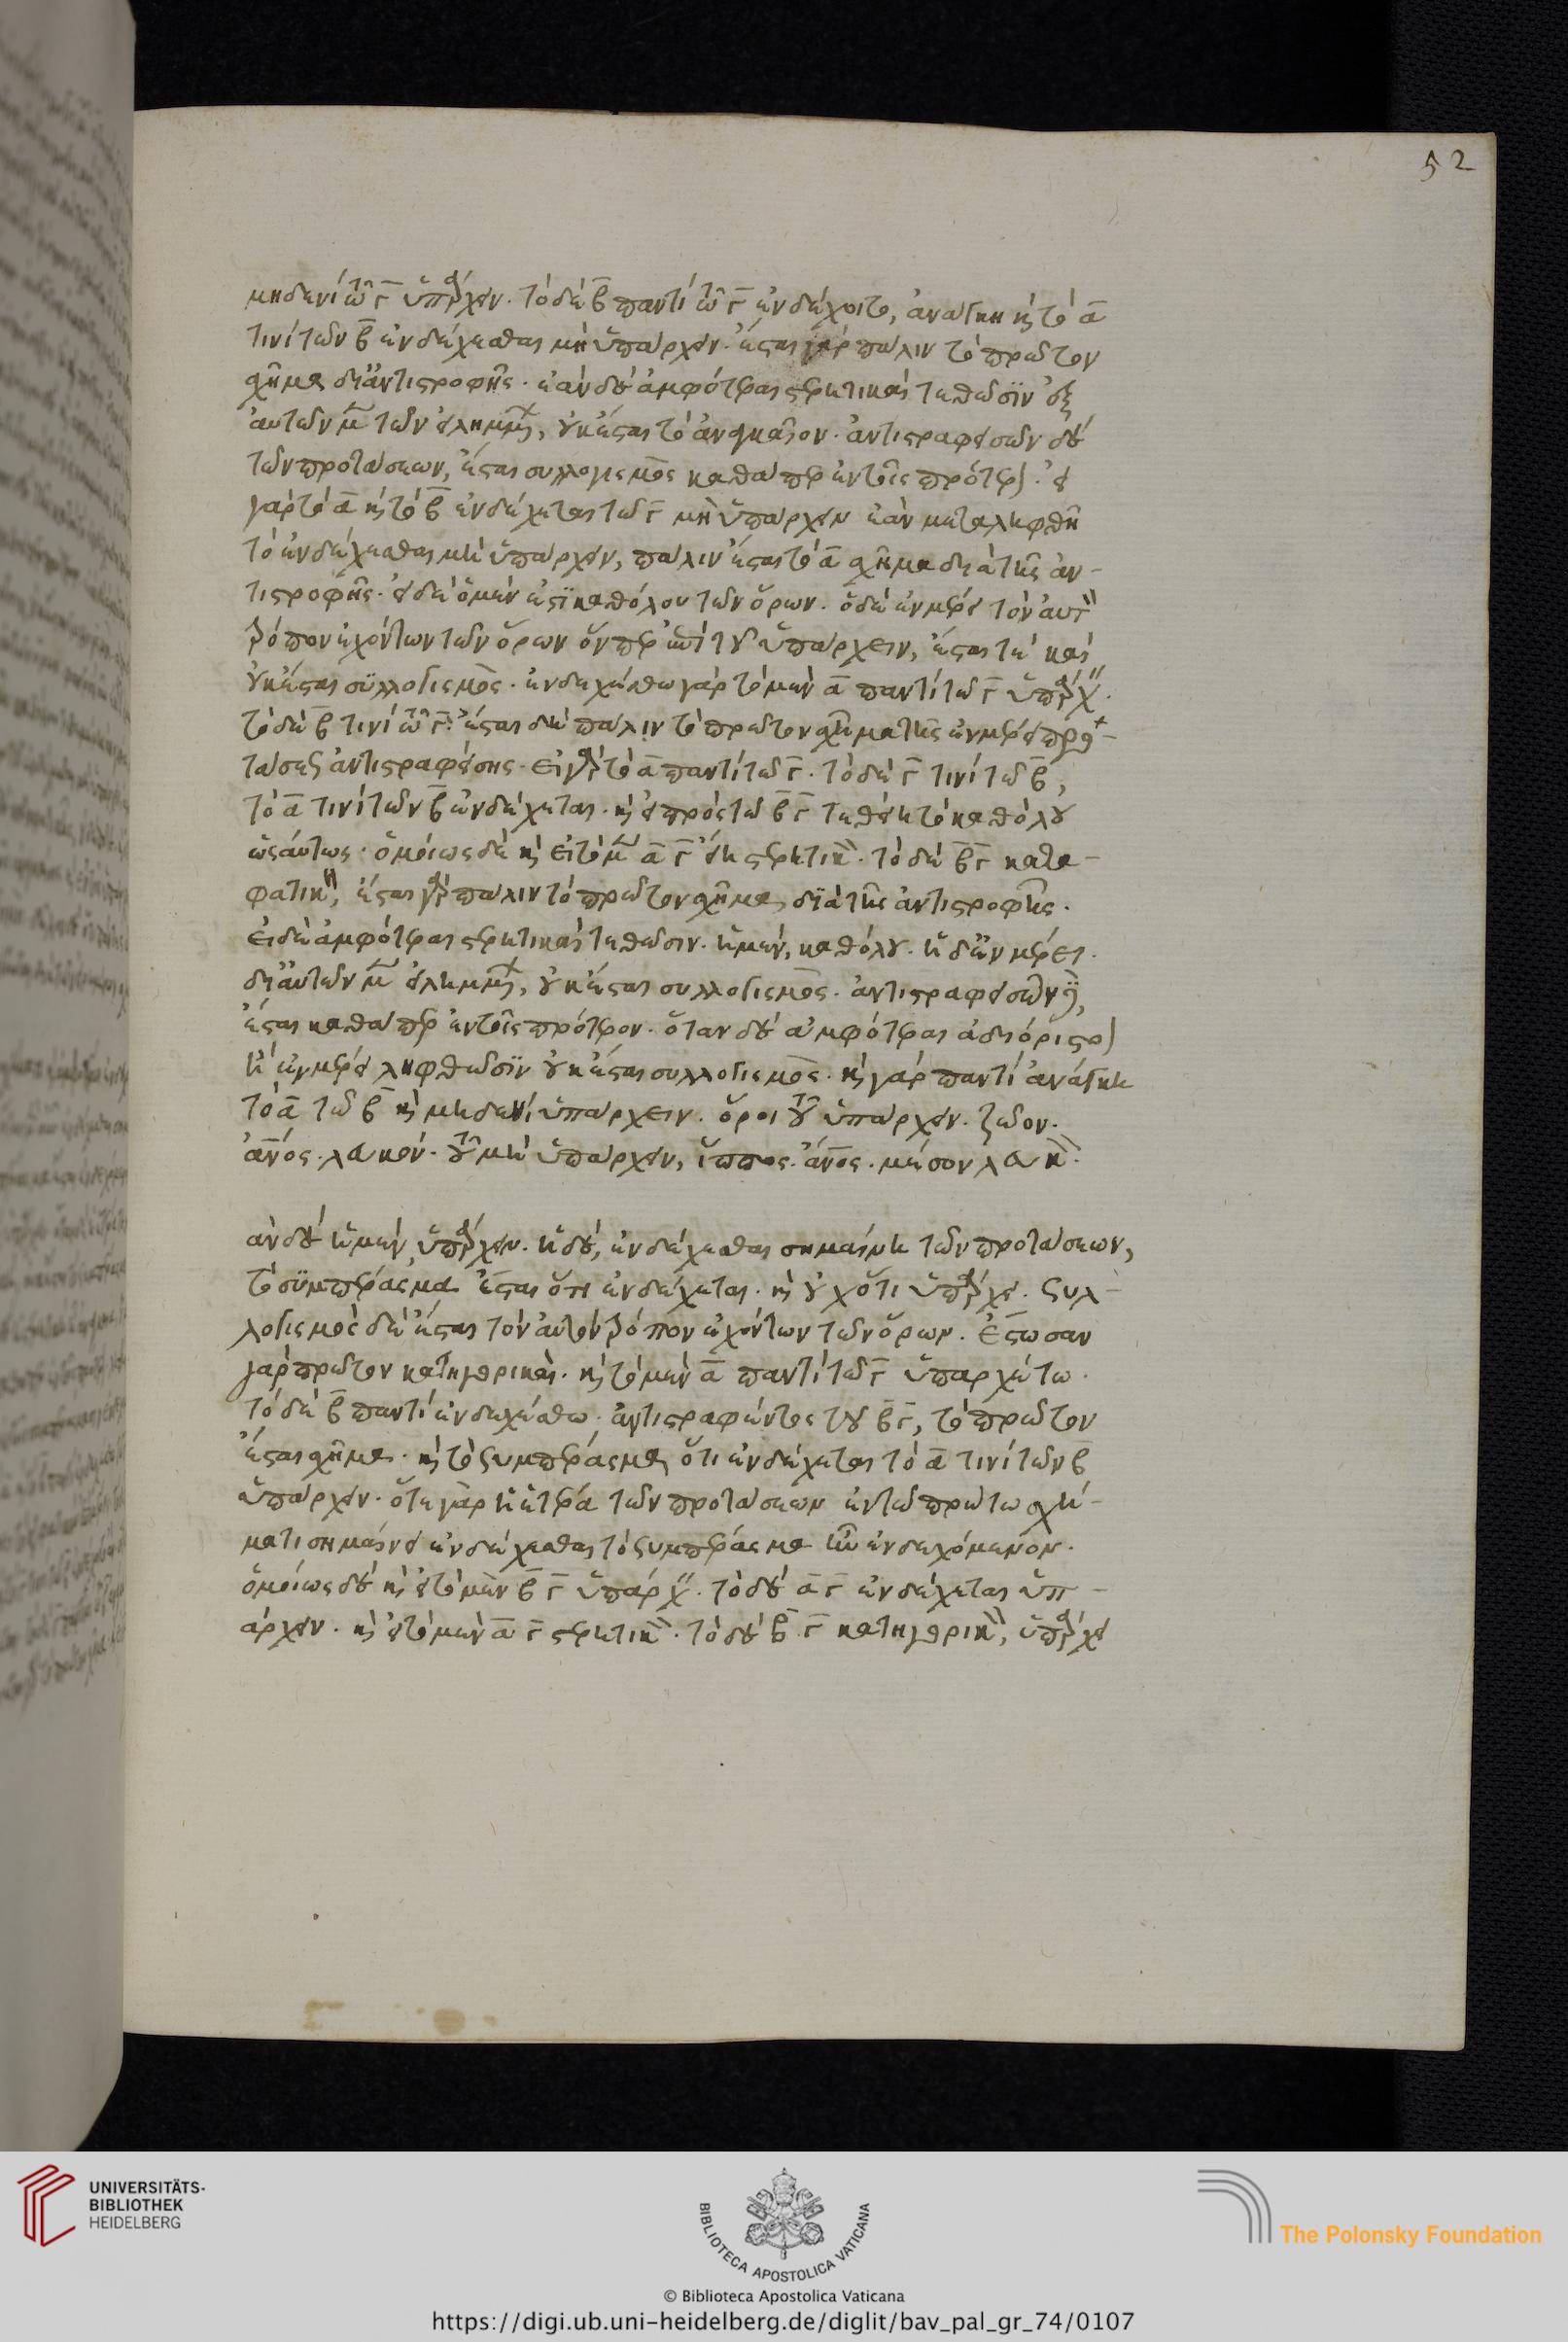 52
μηδενὶ τῶ γ̄ ὑπάρχειν. τὸ δὲ β̄ παντὶ τῶ γ̄ ἐνδέχοιτο, ἀνάγκη κ̀ τὸ ᾱ
τινὶ τῶν β̄ ἐνδέχεσθαι μὴ ὑπάρχειν. ἔσται γὰρ πάλιν τὸ πρῶτον
σχῆμα δι' ἀντιστροφῆς. ἐὰν δὲ ἀμφότεραι στερητικαὶ τεθῶσιν ἐξ
αὐτῶν μ̄ τῶν εἰλημμ, οὐκ ἔσται τὸ ἀναγκαῖον. ἀντιστραφεισῶν δὲ
τῶν προτάσεων, ἔσται συλλογισμὸς καθάπερ ἐν τοῖς πρότερ. εἰ
γὰρ τὸ ᾱ κ̀ τὸ β̄ ἐνδέχεται τῶ γ̄ μὴ ὑπάρχειν ἐὰν μεταληφθῆ
τὸ ἐνδέχεσθαι μὴ ὑπάρχειν, πάλιν ἔσται τὸ ᾱ σχῆμα διὰ τῆς ἀν-
τιστροφῆς. εἰ δὲ ὁ μέν ἐστι καθόλου τῶν ὅρων. ὁ δὲ ἐν μέρει τὸν αὐτ
τρόπον ἐχόντων τῶν ὅρων ὅνπερ ἐπὶ τοῦ ὑπάρχειν, ἔσται τέ καὶ
οὐκ ἔσται συλλογισμὸς. ἐνδεχέσθω γὰρ τὸ μὲν ᾱ παντὶ τῶ γ̄ ὑπάρχ.
τὸ δὲ β̄ τινὶ τῶ γ̄. ἔσται δὴ πάλιν τὸ πρῶτον σχῆμα τῆς ἐν μέρει προ-
τάσεως ἀντιστραφείσης. εἰ γὰρ τὸ ᾱ παντὶ τῶ γ̄. τὸ δὲ γ̄ τινὶ τῶ β̄,
τὸ ᾱ τινὶ τῶν β̄ ἐνδέχεται. κ̀ εἰ πρὸς τῶ β̄ γ̄ τεθείη τὸ καθόλου
ὡσαύτως. ὁμοίως δὲ κ̀ εἰ τὸ μ̄ ᾱ γ̄ εἴη στερητικ. τὸ δὲ β̄ γ̄ κατα-
φατικ, ἔσται γὰρ πάλιν τὸ πρῶτον σχῆμα, διὰ τῆς ἀντιστροφῆς.
εἰ δὲ ἀμφότεραι στερητικαὶ τεθῶσιν. ἡ μὲν, καθόλου. ἡ δ' ἐν μέρει.
δι' αὐτῶν μ̄ εἰλημμ, οὐκ ἔσται συλλογισμὸς. ἀντιστραφεισῶν δ,
ἔσται καθάπερ ἐν τοῖς πρότερον. ὅταν δὲ ἀμφότεραι ἀδιόριστοι
ἢ ἐν μέρει ληφθῶσιν οὐκ ἔσται συλλογισμὸς. κ̀ γὰρ παντὶ ἀνάγκη
τὸ ᾱ τῶ β̄ κ̀ μηδενὶ ὑπάρχειν. ὅροι τοῦ ὑπάρχειν. ζῶον.
ἄνος. λευκόν. τοῦ μὴ ὑπάρχειν, ἵππος. ἄνος. μέσον λευκ.
ὰν δὲ ἡ μὲν ὑπάρχειν. ἡ δὲ, ἐνδέχεσθαι σημαίνη τῶν προτάσεων,
τὸ συμπέρασμα ἔσται ὅτι ἐνδέχεται. κ̀ οὐχ ὅτι ὑπάρχει. συλ-
λογισμὸς δὲ ἔσται τὸν αὐτὸν τρόπον ἐχόντων τῶν ὅρων. ἔστωσαν
γὰρ πρῶτον κατηγορικαὶ. κ̀ τὸ μὲν ᾱ παντὶ τῶ γ̄ ὑπαρχέτω.
τὸ δὲ β̄ παντὶ ἐνδεχέσθω. ἀντιστραφέντος τοῦ β̄ γ̄, τὸ πρῶτον
ἔσται σχῆμα. κ̀ τὸ συμπέρασμα, ὅτι ἐνδέχεται τὸ ᾱ τινὶ τῶν β̄
ὑπάρχειν. ὅτε γὰρ ἡ ἑτέρα τῶν προτάσεων ἐν τῶ πρώτω σχή-
ματι σημαίνει ἐνδέχεσθαι τὸ συμπέρασμα ἦν ἐνδεχόμενον.
ὁμοίως δὲ κ̀ εἰ τὸ μὲν β̄ γ̄ ὑπάρχ. τὸ δὲ ᾱ γ̄ ἐνδέχεται ὑπ-
άρχειν. κ̀ εἰ τὸ μὲν ᾱ γ̄ στερητικ. τὸ δὲ β̄ γ̄ κατηγορικ, ὑπάρχει
UNIVERSITÄTS-
BIBLIOTHEK
HEIDELBERG
BIBLIOTECA APOSTOLICA VATICANA
The Polonsky Foundation
© Biblioteca Apostolica Vaticana
https://digi.ub.uni-heidelberg.de/diglit/bav_pal_gr_74/0107